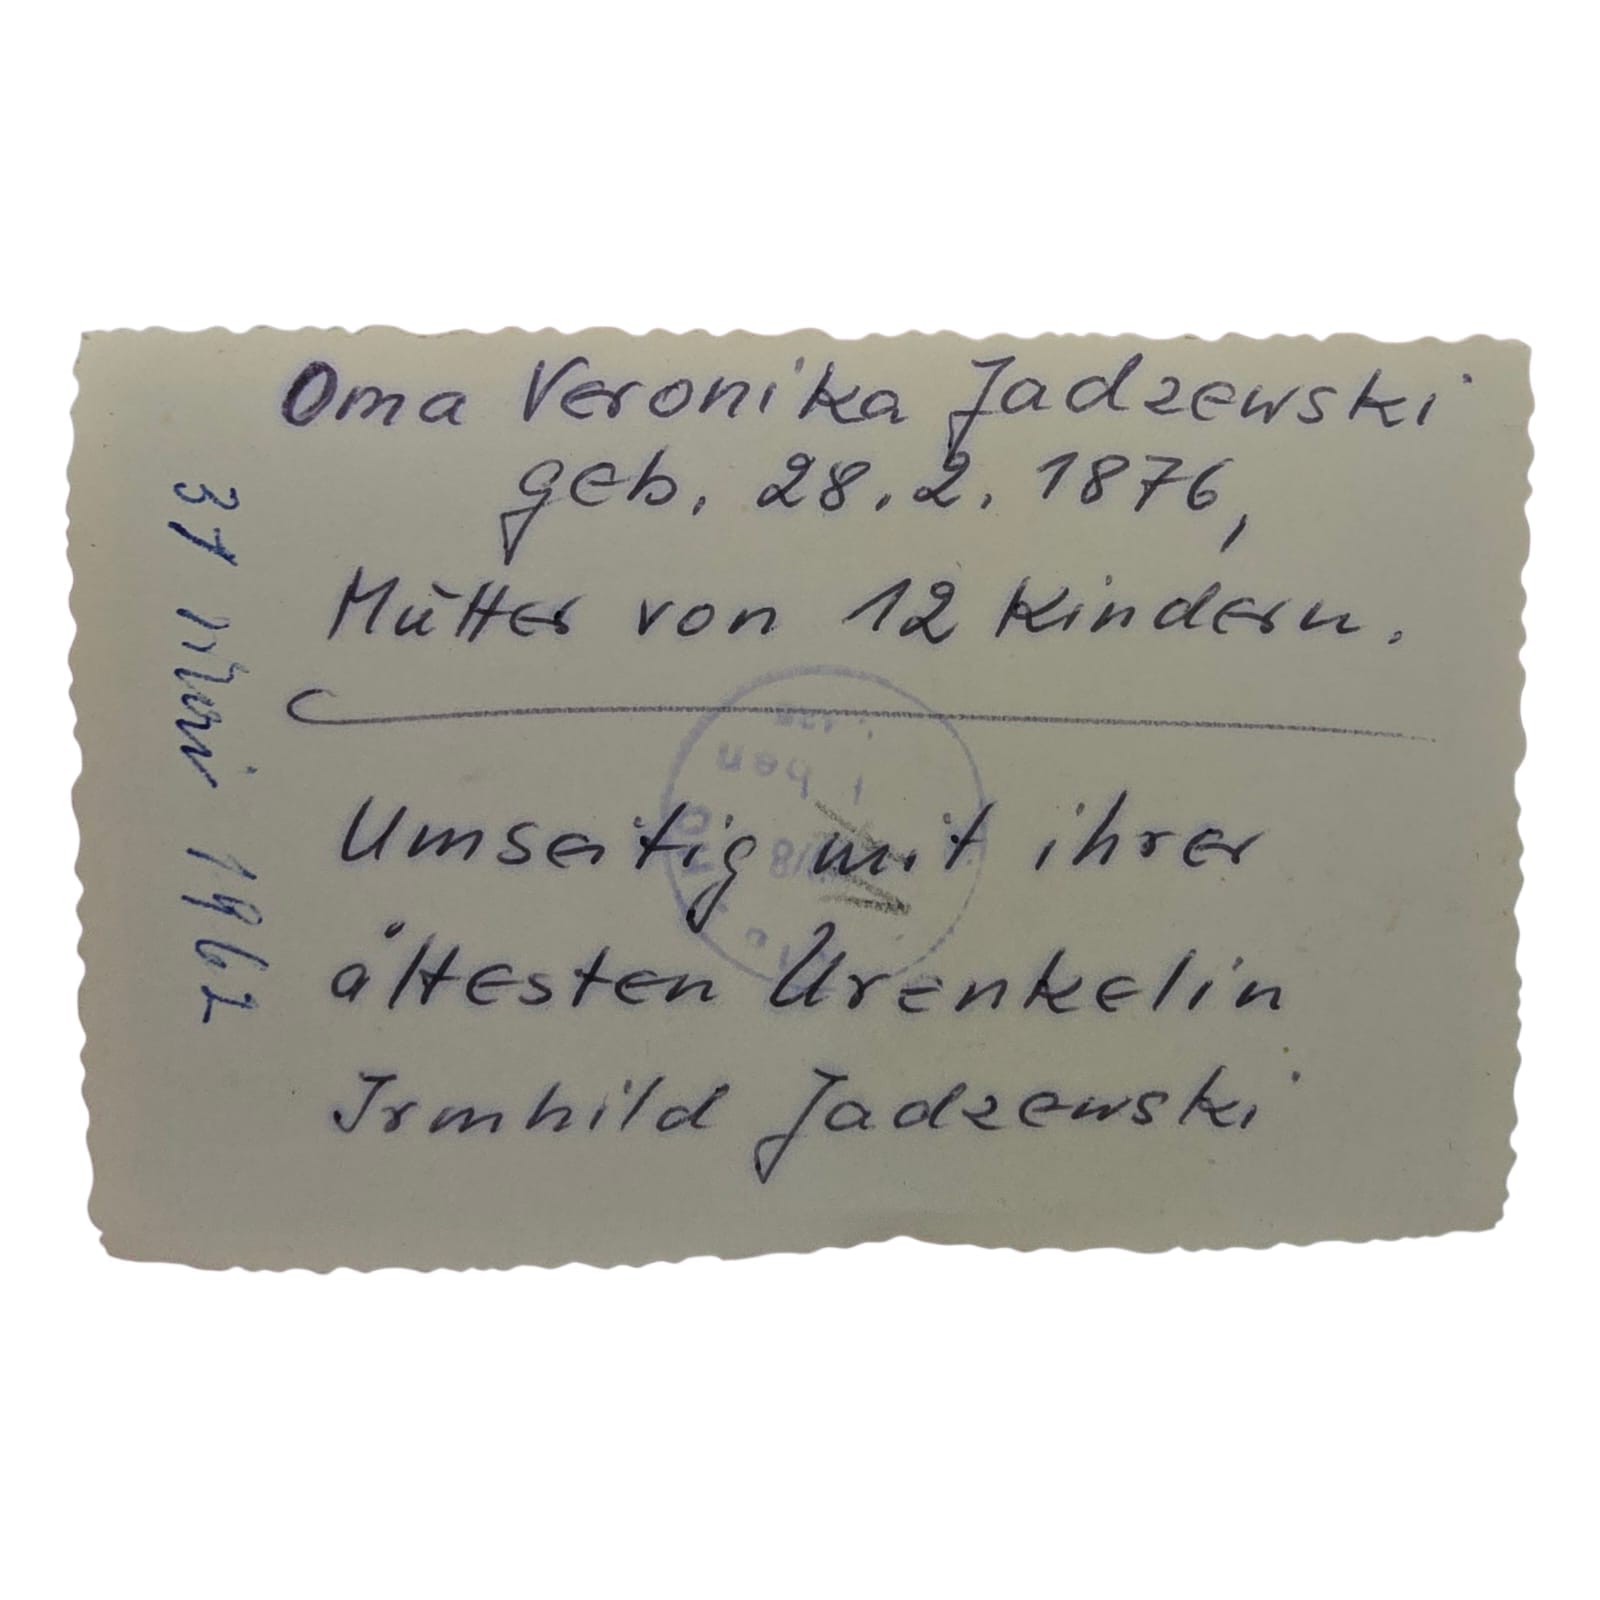 Oma Veronika Jadzewski
geb. 28.2.1876,
Mutter von 12 Kindern.
Umseitig mit ihrer
ältesten Urenkelin
Irmhild Jadzewski
31 Mai 1962